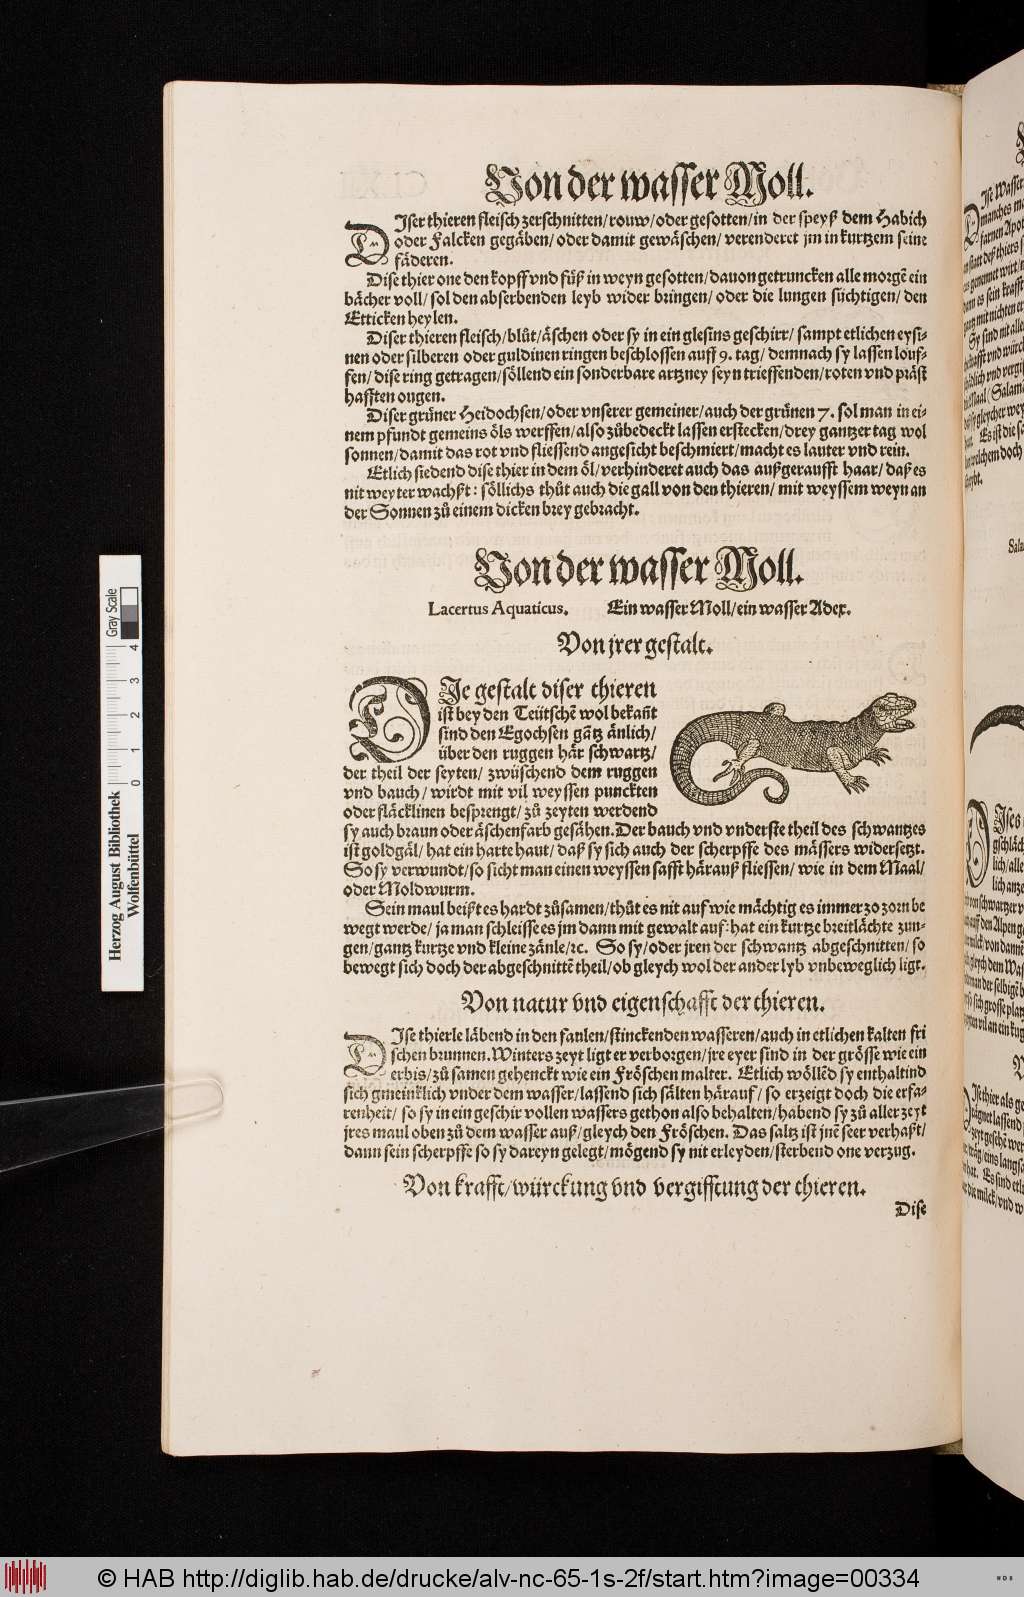 Von der wasser Moll.
DIser thieren fleisch zerschnitten/rouw/oder gesotten/in der speyß dem Habich
oder Falcken gegäben/oder damit gewäschen/verenderet jm in kurtzem seine
fäderen.
Dise thier one den kopff vnd füß in weyn gesotten/dauon getruncken alle morgẽ ein
bächer voll/sol den abserbenden leyb wider bringen/oder die lungen süchtigen/den
Etticken heylen.
Diser thieren fleisch/blůt/äschen oder sy in ein glesins geschirr/sampt etlichen eysi-
nen oder silberen oder guldinen ringen beschlossen auff 9. tag/demnach sy lassen louf-
fen/dise ring getragen/söllend ein sonderbare artzney seyn trieffenden/roten vnd präst
hafften ougen.
Diser grüner Heidochsen/oder vnserer gemeiner/auch der grünen 7. sol man in ei-
nem pfundt gemeins öls werffen/also zůbedeckt lassen erstecken/drey gantzer tag wol
sonnen/damit das rot vnd fliessend angesicht beschmiert/macht es lauter vnd rein.
Etlich siedend dise thier in dem öl/verhinderet auch das außgeraufft haar/daß es
nit weyter wachßt: söllichs thůt auch die gall von den thieren/mit weyssem weyn an
der Sonnen zů einem dicken brey gebracht.
Von der wasser Moll.
Lacertus Aquaticus. Ein wasser Moll/ein wasser Adex.
Von jrer gestalt.
DIe gestalt diser thieren
ist bey den Teütschẽ wol bekañt
sind den Egochsen gãtz änlich/
über den ruggen här schwartz/
der theil der seyten/zwüschend dem ruggen
vnd bauch/wirdt mit vil weyssen punckten
oder fläcklinen besprengt/zů zeyten werdend
sy auch braun oder äschenfarb gesähen. Der bauch vnd vnderste theil des schwantzes
ist goldgäl/hat ein harte haut/daß sy sich auch der scherpffe des mässers widersetzt.
So sy verwundt/so sicht man einen weyssen safft härauß fliessen/wie in dem Maal/
oder Moldwurm.
Sein maul beißt es hardt zůsamen/thůt es nit auf wie mächtig es immer zo zorn be
wegt werde/ja man schleisse es jm dann mit gewalt auf: hat ein kurtze breitlächte zun-
gen/gantz kurtze vnd kleine zänle/ꝛc. So sy/oder jren der schwantz abgeschnitten/so
bewegt sich doch der abgeschnittẽ theil/ob gleych wol der ander lyb vnbeweglich ligt.
Von natur vnd eigenschafft der thieren.
DIse thierle läbend in den faulen/stinckenden wasseren/auch in etlichen kalten fri
schen brunnen. Winters zeyt ligt er verborgen/jre eyer sind in der grösse wie ein
erbis/zůsamen gehenckt wie ein Fröschen malter. Etlich wöllẽd sy enthaltind
sich gmeinklich vnder dem wasser/lassend sich sälten härauf/so erzeigt doch die erfa-
renheit/so sy in ein geschir vollen wassers gethon also behalten/habend sy zů aller zeyt
jres maul oben zů dem wasser auß/gleych den Fröschen. Das saltz ist jnẽ seer verhaßt/
dann sein scherpffe so sy dareyn gelegt/mögend sy nit erleyden/sterbend one verzug.
Von krafft/würckung vnd vergifftung der thieren.
Dise
Herzog August Bibliothek
Wolfenbüttel
Gray Scale
0 1 2 3 4
© HAB http://diglib.hab.de/drucke/alv-nc-65-1s-2f/start.htm?image=00334